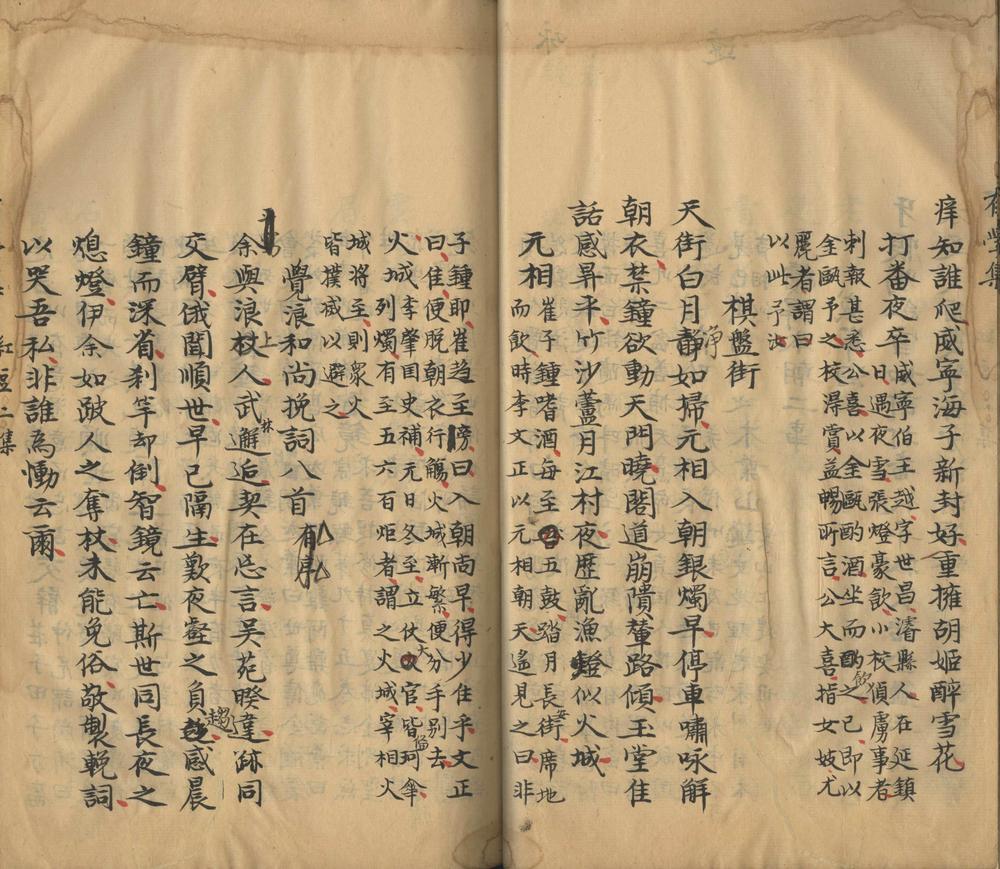 痒知誰爬威寧海子新封好重擁胡姬醉雪花
打番夜卒威寧伯王越字世昌濬縣人在延鎮
日遇夜雪張燈豪飲小校偵虜事者
刺報甚悉公喜以金甌酌酒坐而酌之已即以
飲
金甌予之校得賞益暢所言公大喜指女妓尤
麗者謂曰
以此予汝
棋盤街
天街白月靜如掃元相入朝銀燭早停車嘯咏解
淨
朝衣禁鐘欲動天門曉閣道崩隤輦路傾玉堂佳
話感昇平竹沙蘆月江村夜歷亂漁燈似火城
元相崔子鍾嗜酒每至五鼓踏月長街席地
而飲時李文正以元相朝天遙見之曰非
子鍾即崔趋至膀曰入朝尚早得少住乎文正
曰佳便脫朝衣行觴火城漸繁便分手別去
火城李肇国史補元日冬至立伏官皆珂傘
大
備
列燭有至五六百炬者謂之火城宰相火
城將至則眾火
皆撲滅以避之
覺浪和尚挽詞八首有序
余與浪杖人武邂逅契在忘言吳苑暌違跡同
上
林
交臂俄聞順世早已隔生歎夜壑之負感晨
趨
鐘而深省刹竿却倒智鏡云亡斯世同長夜之
熄燈伊余如跛人之奪杖未能免俗敬製輓詞
以哭吾私非誰為慟云爾